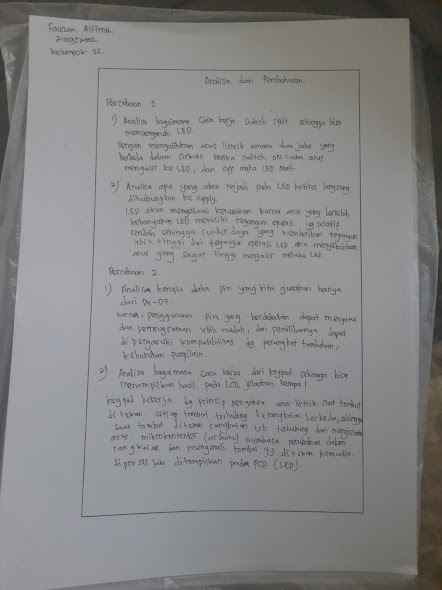 Fauzan Alfitrah
Kelompok 3C.
Analisa dan Pembahasan
Percobaan 1.
1) Analisa bagaimana Cara kerja Switch spdt sehingga bisa
mempengaruhi LED.
Dengan mengalirkan arus listrik antara dua jalur yang
berbeda dalam sirkuit. ketika switch ON maka arus
mengalir ke LED, dan OFF maka LED mati.
2) Analisa apa yang akan terjadi pada LED ketika langsung
dihubungkan ke supply.
LED akan mengalami kerusakan karna arus yang berlebih
kebanyakan LED memiliki tegangan operasi yg relatif
rendah sehingga sumber daya yang memberikan tegangan
lebih tinggi dari tegangan operasi LED akan menyebabkan
arus yang sangat tinggi mengalir melalui LED.
Percobaan 2.
1) Analisa kenapa data pin yang kita gunakan hanya
dari D4-D7.
karna, penggunaan pin yang berdekatan dapat
dan pemrograman lebih mudah, dan pemilihannya dapat
di pengaruhi kompatibilitas dg perangkat tambahan,
kebutuhan
2) Analisa bagaimana cara kerja dari keypad sehingga bisa
menampilkan hasil pada LCD jelaskan kenapa!
keypad bekerja dg prinsip pengubah arus listrik saat tombol
ditekan. setiap tombol terhubung kerangkaian berbeda, sehingga
saat tombol ditekan rangkaian tsb terhubung dan
arus. mikrokontroler (arduino) membaca perubahan dalam
rangkaian dan mengenali tombol yg ditekan. kemudian
diproses lalu ditampilkan pada PCD (LCD).